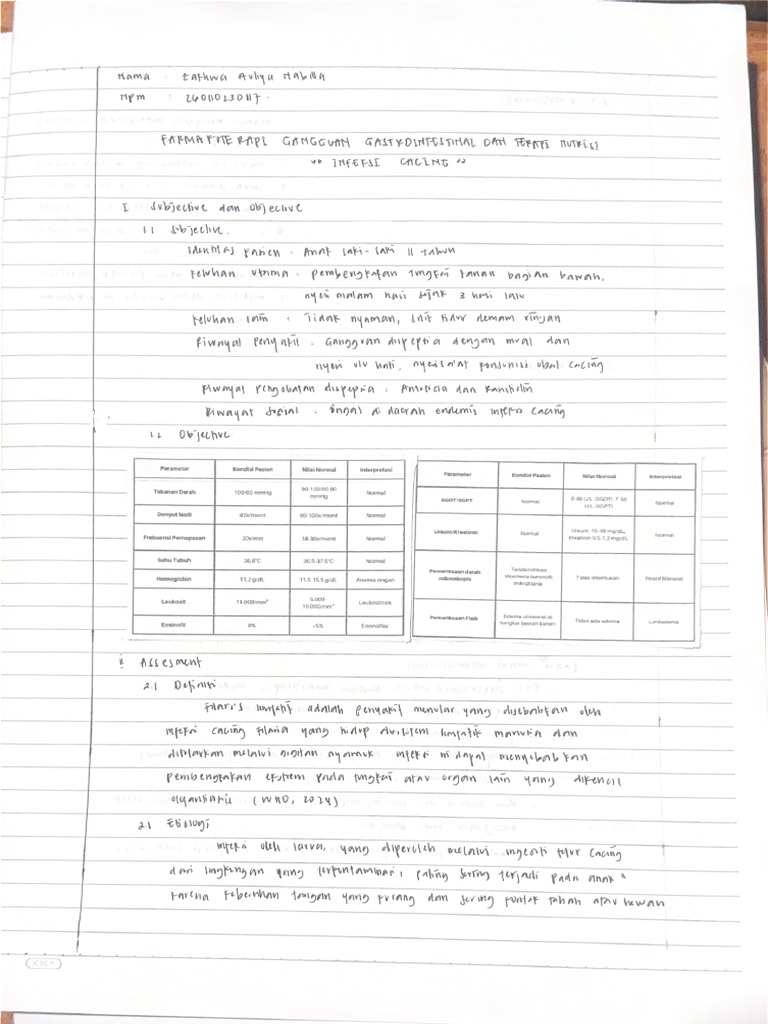 Nama : Zakhwa Auliya Nabilla
Npm : 260110230117.
FARMAKOTERAPI GANGGUAN GASTROINTESTINAL DAN TERAPI NUTRISI
"" INFEKSI CACING ""
I Subjective dan Objective
1.1 Subjective.
Identitas Pasien : Anak laki-laki 11 Tahun
Keluhan utama : pembengkakan tungkai kanan bagian bawah,
nyeri malam hari sejak 3 hari lalu
Keluhan lain : Tidak nyaman, sulit tidur demam ringan
Riwayat Penyakit : Gangguan dispepsia dengan mual dan
nyeri ulu hati, nyeri saat konsumsi obat cacing
Riwayat Pengobatan dispepsia : Antasida dan Ranitidin
Riwayat Sosial : tinggal di daerah endemis infeksi cacing
1.2 Objective
Parameter Kondisi Pasien Nilai Normal Interpretasi
Tekanan Darah 100/60 mmHg 90-120/60-80 mmHg Normal
Denyut Nadi 92x/menit 60-100x/menit Normal
Frekuensi Pernapasan 20x/min 18-30x/menit Normal
Suhu Tubuh 36,8°C 36,5-37,5°C Normal
Hemoglobin 11,2 g/dL 11,5-15,5 g/dL Anemia ringan
Leukosit 11.000/mm³ 5.000-10.000/mm³ Leukositosis
Eosinofil 8% <5% Eosinofilia
Parameter Kondisi Pasien Nilai Normal Interpretasi
SGOT/SGPT Normal (SGOT), (SGPT) Normal
Ureum/Kreatinin Normal Ureum: 10-40 mg/dL, Kreatinin 0,5-1,2 mg/dL Normal
Pemeriksaan darah mikroskopis Teridentifikasi mikrofilaria Tidak ditemukan Positif filariasis
Pemeriksaan Fisik Edema unilateral di tungkai bawah kanan Tidak ada edema Limfedema
II Assesment
2.1 Definisi
Filariasis limfatik adalah penyakit menular yang disebabkan oleh
infeksi cacing filaria yang hidup di sistem limfatik manusia dan
ditularkan melalui gigitan nyamuk. infeksi ini dapat menyebabkan
pembengkakan ekstrem pada tungkai atau organ lain yang dikenal
(WHO, 2024)
2.2 Etiologi
Infeksi oleh larva, yang diperoleh melalui ingesti telur cacing
dari lingkungan yang terkontaminasi, paling sering terjadi pada anak"
karena kebersihan tangan yang kurang dan sering kontak tanah atau hewan